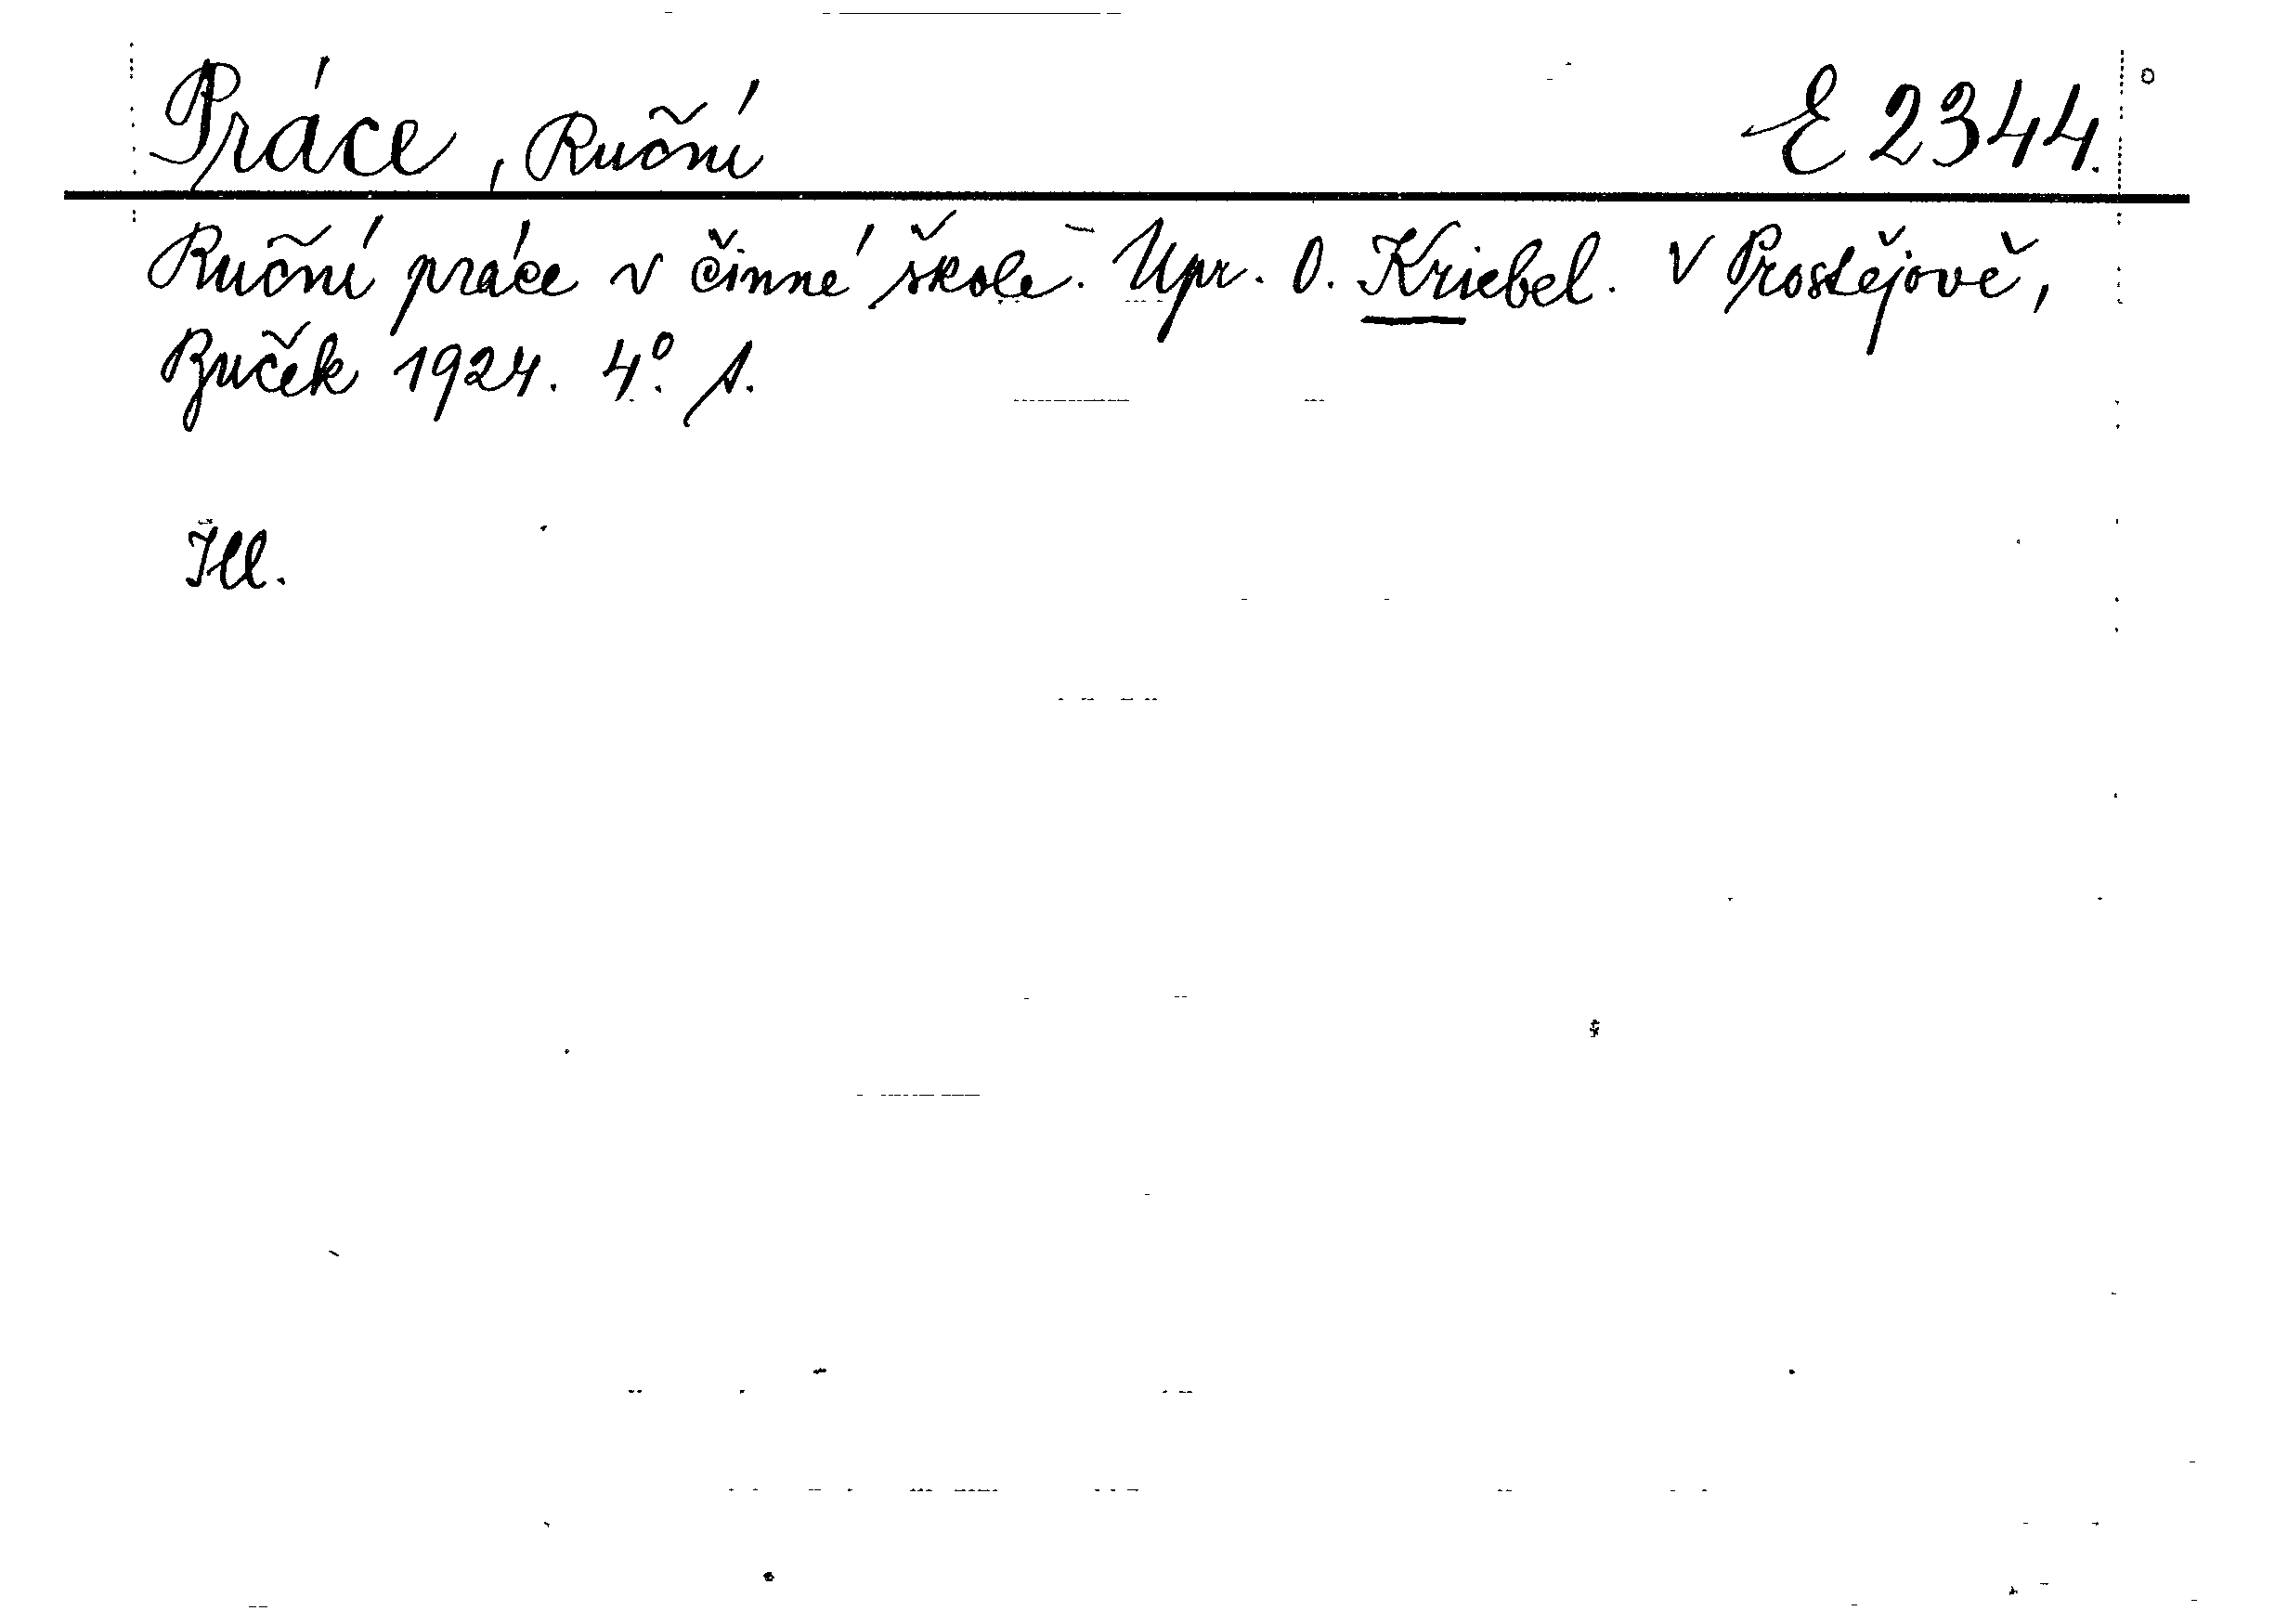 Práce, Ruční E 2344.
Ruční práce v činné škole. Upr. O. Kriebel. V Prostějově,
Buček 1924. 4°. s.
Ill.